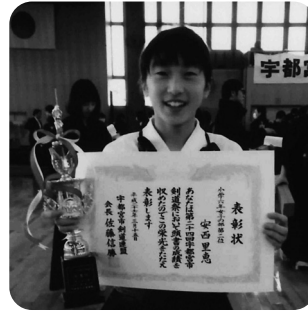 宇都宮
表彰状
小学六年女子の部第二位
安西里恵
あなたは第二十四回宇都宮市
剣道祭において頭書の成績を
収めたのでこの栄光をたたえ
表彰します
宇都宮市剣道連盟
会長 佐藤信勝